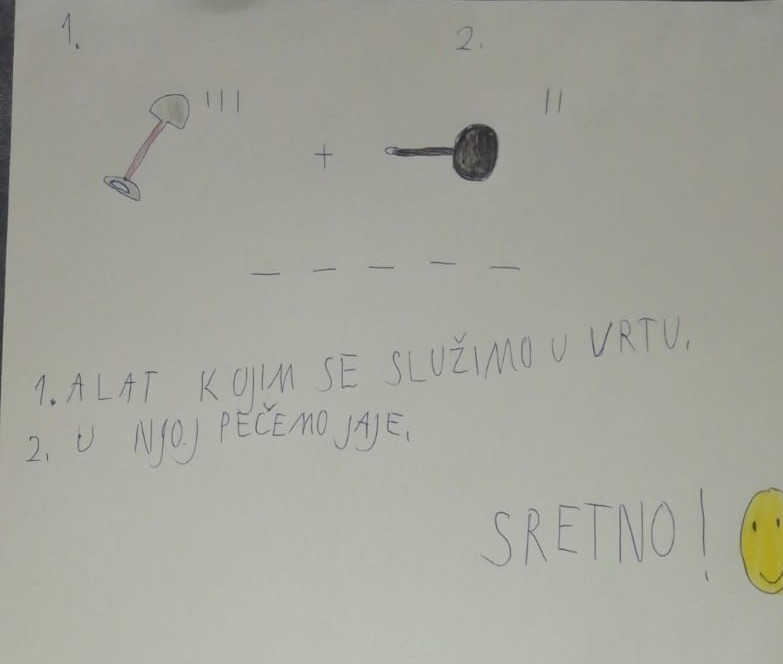 1. 2.
''' ''
+
_ _ _ _ _
1. ALAT KOJIM SE SLUŽIMO U VRTU.
2. U NJOJ PEČEMO JAJE.
SRETNO!